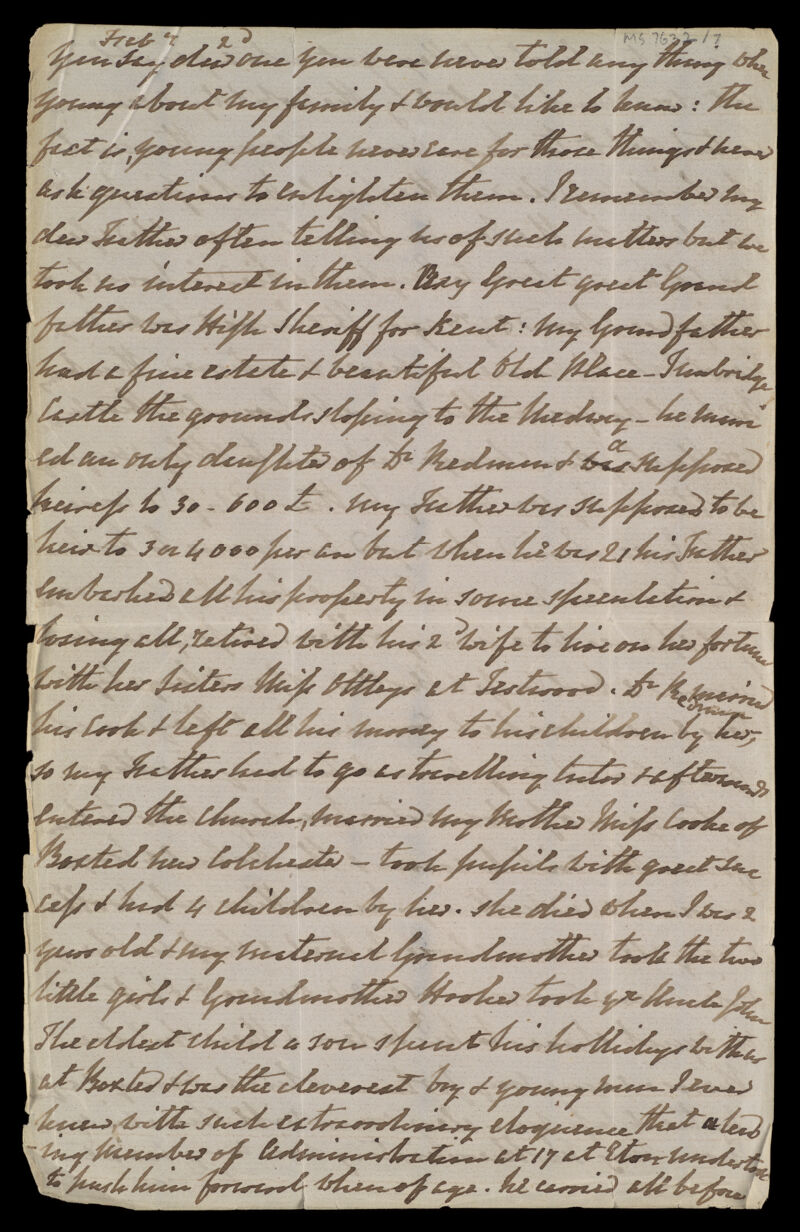 Feb y 2d
MS 7633/7
You say dear one you were never told any thing when
young about my family & would like to know: the
fact is, young people never care for those things & never
ask questions to enlighten them. I remember my
dear Father often telling us of such matters but we
took no interest in them. My Great great Grand
father was High Sheriff for Kent: my Grandfather
had a fine estate & beautiful Old Place - Tunbridge
Castle the grounds sloping to the Medway - he marri
ed an only daughter of Dr Redman & was a supposed
heiress to 30-600£. My Father was supposed to be
heir to 3 or 4000 per an but when he was 21 his Father
embarked all his property in some speculation &
losing all, retired with his 2d wife to live on her fortune
with her sisters Miss Ottleys at Testwood. Dr Redman married
his Cook & left all his money to his children by her,
so my Father had to go as travelling tutor & afterwards
entered the Church, married my Mother Miss Cooke of
Boxted near Colchester - took pupils with great suc
cess & had 4 children by her. She died when I was 2
years old & my maternal Grandmother took the two
little girls & Grandmother Hooker took yr Uncle John
The eldest child a son spent his hollidays with us
at Boxted & was the cleverest boy & young man I ever
knew with such extraordinary eloquence that a lead
ing member of Administration at 17 at Eton undertook
to push him forward when of age. He carried all before